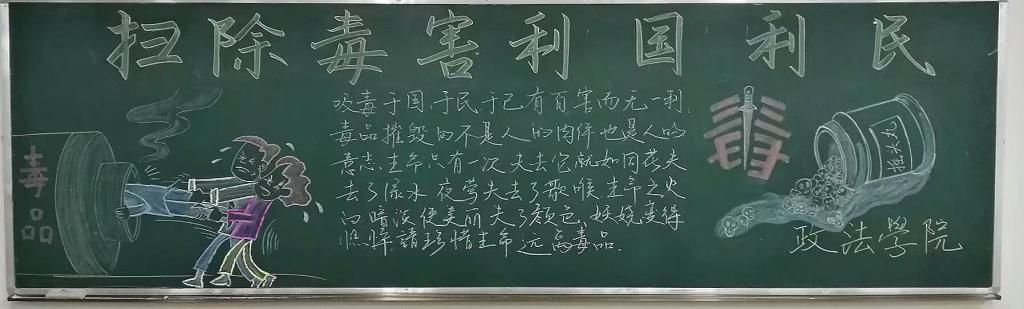 扫除毒害利国利民
毒品
吸毒于国、于民于己有百害而无一利.
毒品摧毁的不是人的肉体也是人的
意志.生命只有一次失去它就如同花失
去了绿水夜莺失去了歌喉生命之火
白暗淡使美丽失了颜色.妖娆变得
憔悴請珍惜生命远离毒品.
毒
摇头丸
政法學院